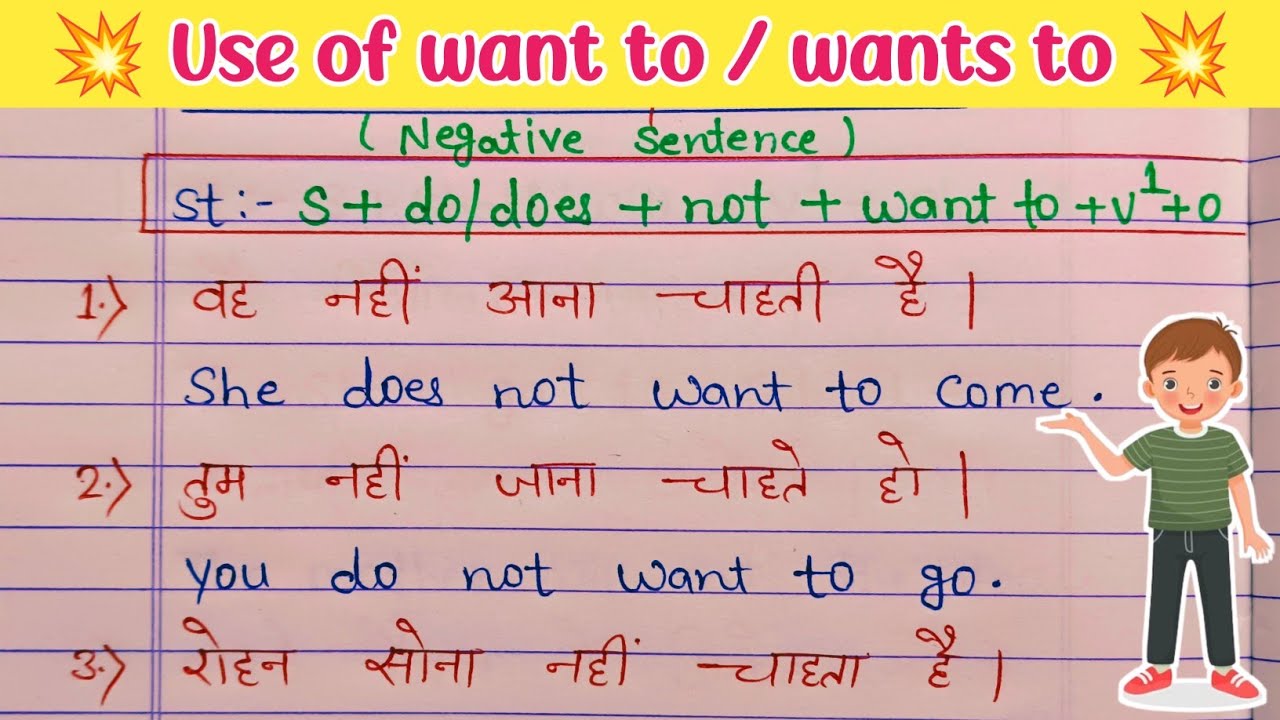 Use of want to / wants to
( Negative Sentence )
St :- S + do/does + not + want to + v¹ + o
1.) वह नहीं आना चाहती है।
She does not want to come.
2.) तुम नहीं जाना चाहते हो।
you do not want to go.
3.) रोहन सोना नहीं चाहता है।